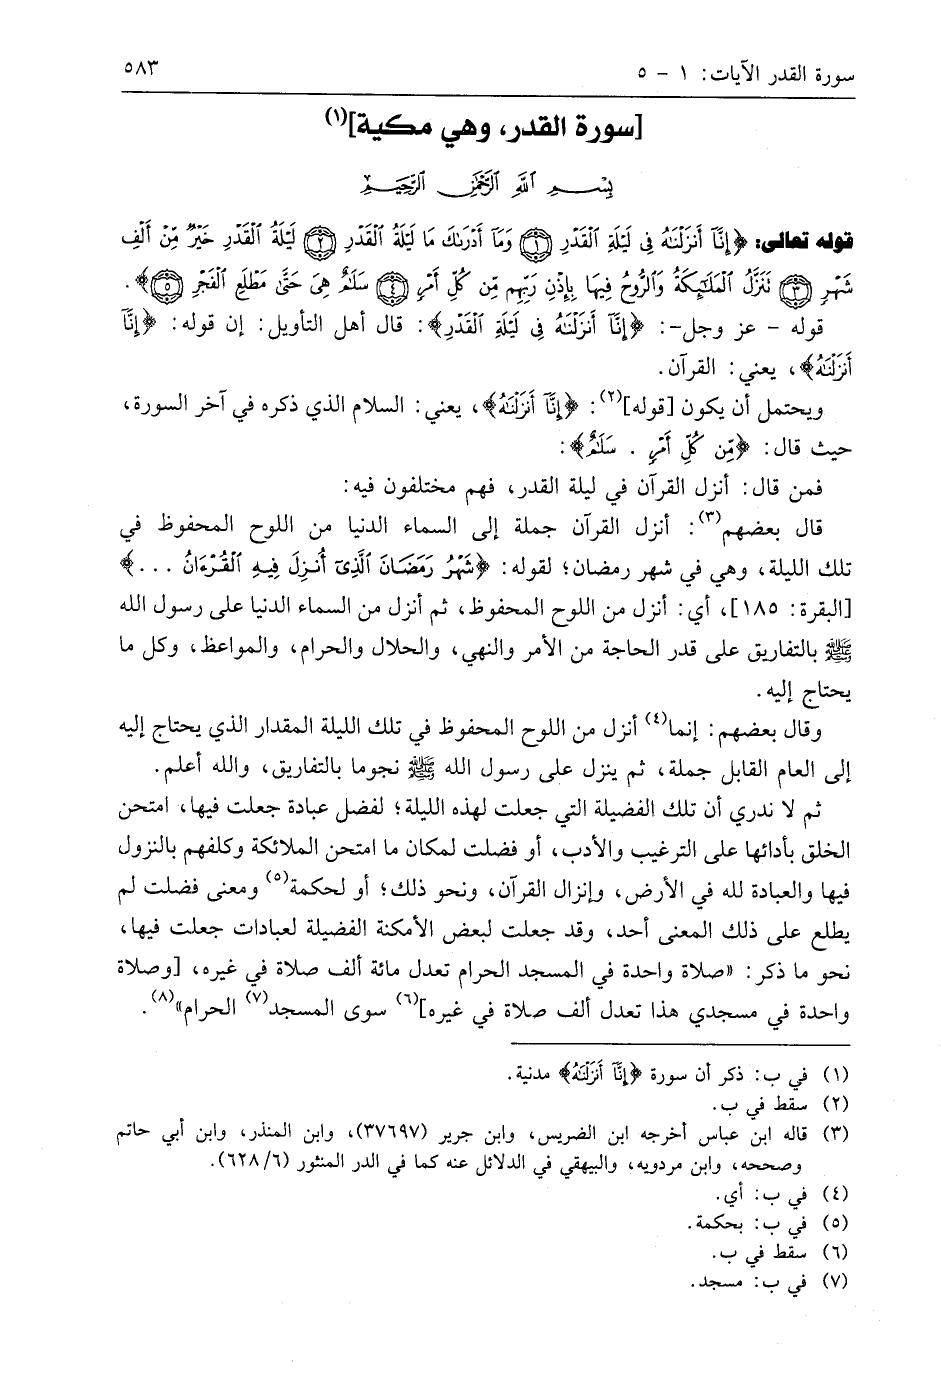 سورة القدر الآيات: ١ - ٥ ٥٨٣
[سورة القدر، وهي مكية](١)
بِسْمِ اللَّهِ الرَّحْمَٰنِ الرَّحِيمِ
قوله تعالى: ﴿إِنَّآ أَنزَلْنَٰهُ فِى لَيْلَةِ ٱلْقَدْرِ ﴿١﴾ وَمَآ أَدْرَىٰكَ مَا لَيْلَةُ ٱلْقَدْرِ ﴿٢﴾ لَيْلَةُ ٱلْقَدْرِ خَيْرٌ مِّنْ أَلْفِ
شَهْرٍ ﴿٣﴾ نَنَزَّلُ ٱلْمَلَٰٓئِكَةُ وَٱلرُّوحُ فِيهَا بِإِذْنِ رَبِّهِم مِّن كُلِّ أَمْرٍ ﴿٤﴾ سَلَٰمٌ هِىَ حَتَّىٰ مَطْلَعِ ٱلْفَجْرِ ﴿٥﴾﴾.
قوله - عز وجل-: ﴿إِنَّآ أَنزَلْنَٰهُ فِى لَيْلَةِ ٱلْقَدْرِ﴾: قال أهل التأويل: إن قوله: ﴿إِنَّآ
أَنزَلْنَٰهُ﴾، يعني: القرآن.
ويحتمل أن يكون [قوله](٢): ﴿إِنَّآ أَنزَلْنَٰهُ﴾، يعني: السلام الذي ذكره في آخر السورة،
حيث قال: ﴿مِّن كُلِّ أَمْرٍ . سَلَٰمٌ﴾:
فمن قال: أنزل القرآن في ليلة القدر، فهم مختلفون فيه:
قال بعضهم(٣): أنزل القرآن جملة إلى السماء الدنيا من اللوح المحفوظ في
تلك الليلة، وهي في شهر رمضان؛ لقوله: ﴿شَهْرُ رَمَضَانَ ٱلَّذِىٓ أُنزِلَ فِيهِ ٱلْقُرْءَانُ ...﴾
[البقرة: ١٨٥]، أي: أنزل من اللوح المحفوظ، ثم أنزل من السماء الدنيا على رسول الله
ﷺ بالتفاريق على قدر الحاجة من الأمر والنهي، والحلال والحرام، والمواعظ، وكل ما
يحتاج إليه.
وقال بعضهم: إنما(٤) أنزل من اللوح المحفوظ في تلك الليلة المقدار الذي يحتاج إليه
إلى العام القابل جملة، ثم ينزل على رسول الله ﷺ نجوما بالتفاريق، والله أعلم.
ثم لا ندري أن تلك الفضيلة التي جعلت لهذه الليلة؛ لفضل عبادة جعلت فيها، امتحن
الخلق بأدائها على الترغيب والأدب، أو فضلت لمكان ما امتحن الملائكة وكلفهم بالنزول
فيها والعبادة لله في الأرض، وإنزال القرآن، ونحو ذلك؛ أو لحكمة(٥) ومعنى فضلت لم
يطلع على ذلك المعنى أحد، وقد جعلت لبعض الأمكنة الفضيلة لعبادات جعلت فيها،
نحو ما ذكر: «صلاة واحدة في المسجد الحرام تعدل مائة ألف صلاة في غيره، [وصلاة
واحدة في مسجدي هذا تعدل ألف صلاة في غيره](٦) سوى المسجد(٧) الحرام»(٨).
(١) في ب: ذكر أن سورة ﴿إِنَّآ أَنزَلْنَٰهُ﴾ مدنية.
(٢) سقط في ب.
(٣) قاله ابن عباس أخرجه ابن الضريس، وابن جرير (٣٧٦٩٧)، وابن المنذر، وابن أبي حاتم
وصححه، وابن مردويه، والبيهقي في الدلائل عنه كما في الدر المنثور (٦٢٨/٦).
(٤) في ب: أي.
(٥) في ب: بحكمة.
(٦) سقط في ب.
(٧) في ب: مسجد.